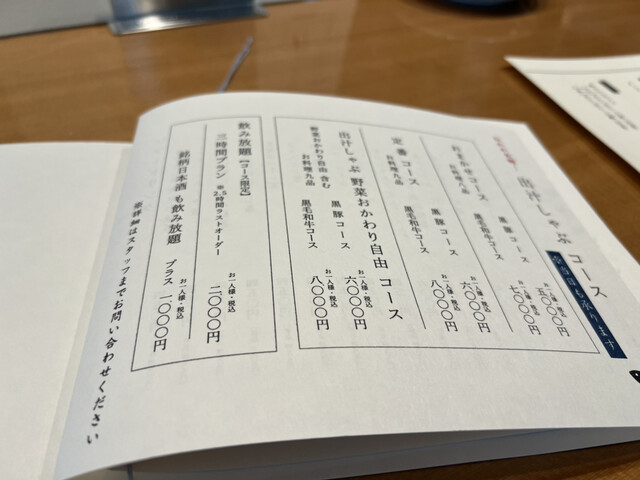 出汁しゃぶ コース
当日も承ります
おまかせコース
お料理八品
黒豚 コース
お一人様・税込
五〇〇〇円
黒毛和牛コース
お一人様・税込
七〇〇〇円
定番 コース
お料理九品
黒豚 コース
お一人様・税込
六〇〇〇円
黒毛和牛コース
お一人様・税込
八〇〇〇円
出汁しゃぶ 野菜おかわり自由 コース
野菜おかわり自由 含む
お料理九品
黒豚 コース
お一人様・税込
六〇〇〇円
黒毛和牛コース
お一人様・税込
八〇〇〇円
飲み放題【コース限定】
三時間プラン ※2.5時間ラストオーダー
お一人様・税込
二〇〇〇円
銘柄日本酒 も飲み放題
お一人様・税込
プラス 一〇〇〇円
※詳細はスタッフまでお問い合わせください